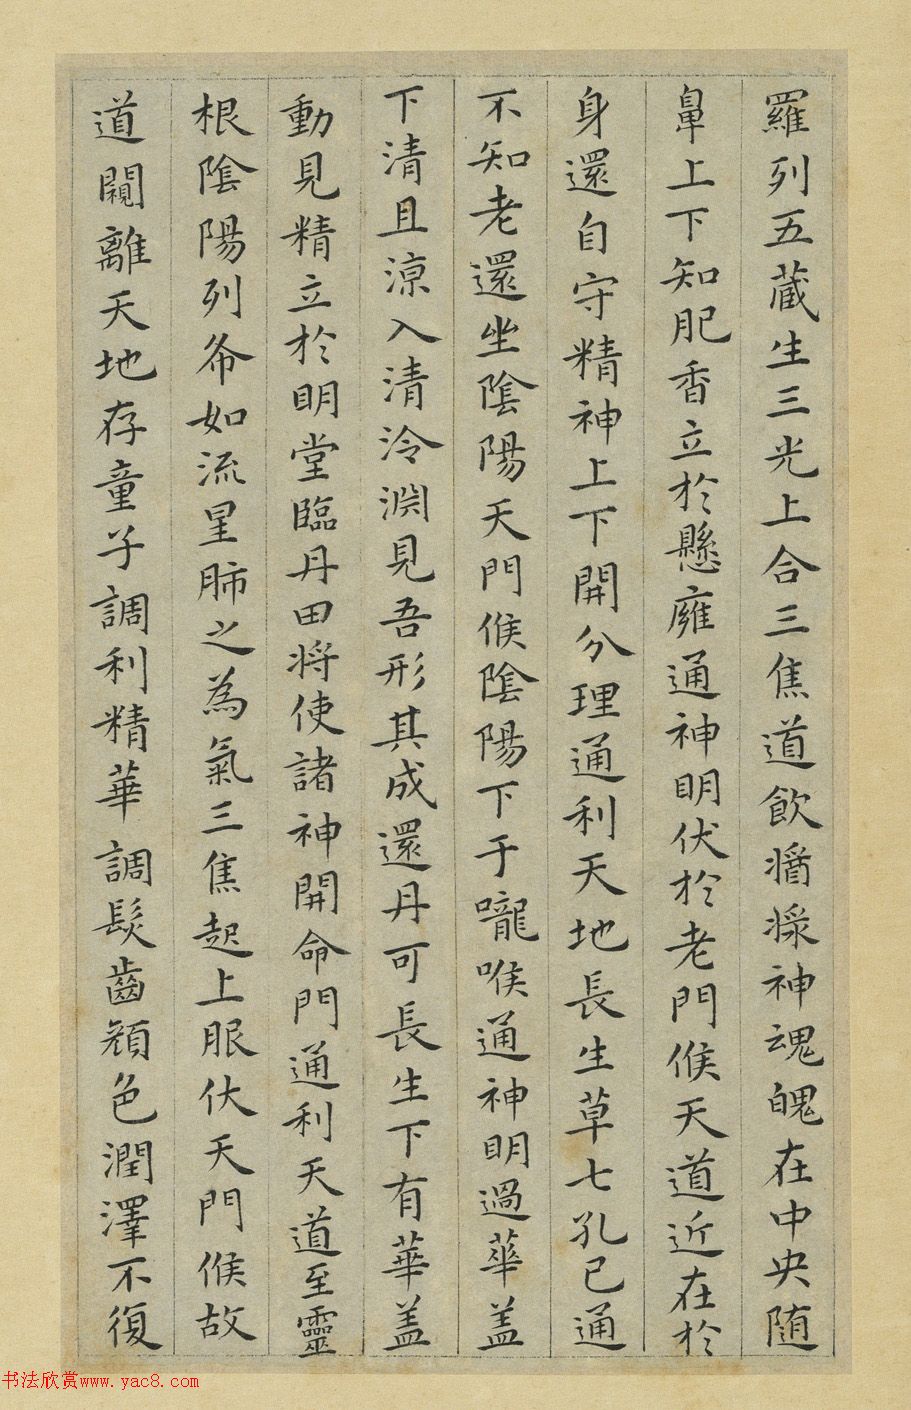 羅列五藏生三光上合三焦道飲醬㵂神魂魄在中央随
鼻上下知肥香立於懸癕通神明伏於老門候天道近在於
身還自守精神上下開分理通利天地長生草七孔已通
不知老還坐陰陽天門候陰陽下于嚨喉通神明過華盖
下清且涼入清泠淵見吾形其成還丹可長生下有華盖
動見精立於明堂臨丹田将使諸神開命門通利天道至靈
根陰陽列布如流星肺之為氣三焦起上服伏天門候故
道闚離天地存童子調利精華調髮齒顏色潤澤不復
书法欣赏www.yac8.com